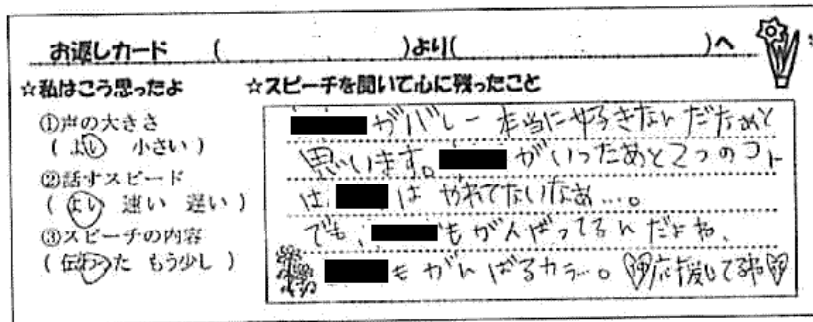 お返しカード （　　　　）より（　　　　）へ
☆私はこう思ったよ
①声の大きさ
（ よい　小さい ）
②話すスピード
（ よい　速い　遅い ）
③スピーチの内容
（ 伝わった　もう少し ）
☆スピーチを聞いて心に残ったこと
がバレー本当に好きなんだなぁと
思います。がいったあと2つのコト
は、は やれてないなぁ…。
でも、もがんばってるんだよね、
もがんばるカラ…。応援してるね